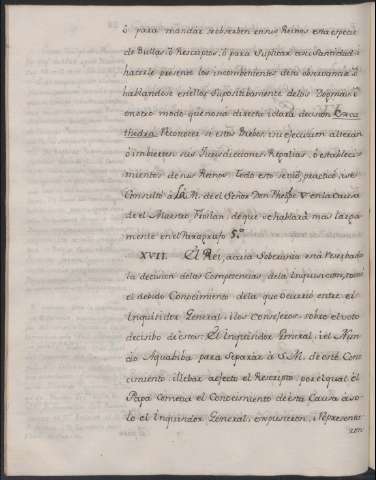 ó para mandar se observen en sus Reinos esta especie
de Bullas, ó Rescriptos, ó para Suplicar a su Santidad i
hacerle presente los inconbenientes de su observancia, ó
hablandose en ellos Supositibamente de los Dogmas, ó
en otro modo que no sea directa i clara decision Exca-
thedra, Reconocer si estos Brebes, i su ejecucion alteran
ó imbierten sus Jurisdicciones, Regalias, ó estableci-
mientos de sus Reinos. Todo esto se vió, practicó, i se
Consultó á la M. de el Señor Don Phelipe V. en la Causa
de el Maestro Froilan, de que se hablará mas larga-
mente en el Paragrafo 5.º
XVII. El Rei, a cuia Soberania está reserbada
la decision de las Competencias, de la Inquisicion, tomó
el debido Conocimiento de la que ocurrió entre el
Inquisidor General, i los Consejeros sobre el voto
decisibo de estos: El Inquisidor General, i el Nun-
cio Aquabiba para Separar á S.M. de este Cono-
cimiento i llebar a efecto el Rescripto, por el qual el
Papa Cometia el Conocimiento de esta Causa a so-
lo el Inquisidor General, expusieron, i Representa-
ron